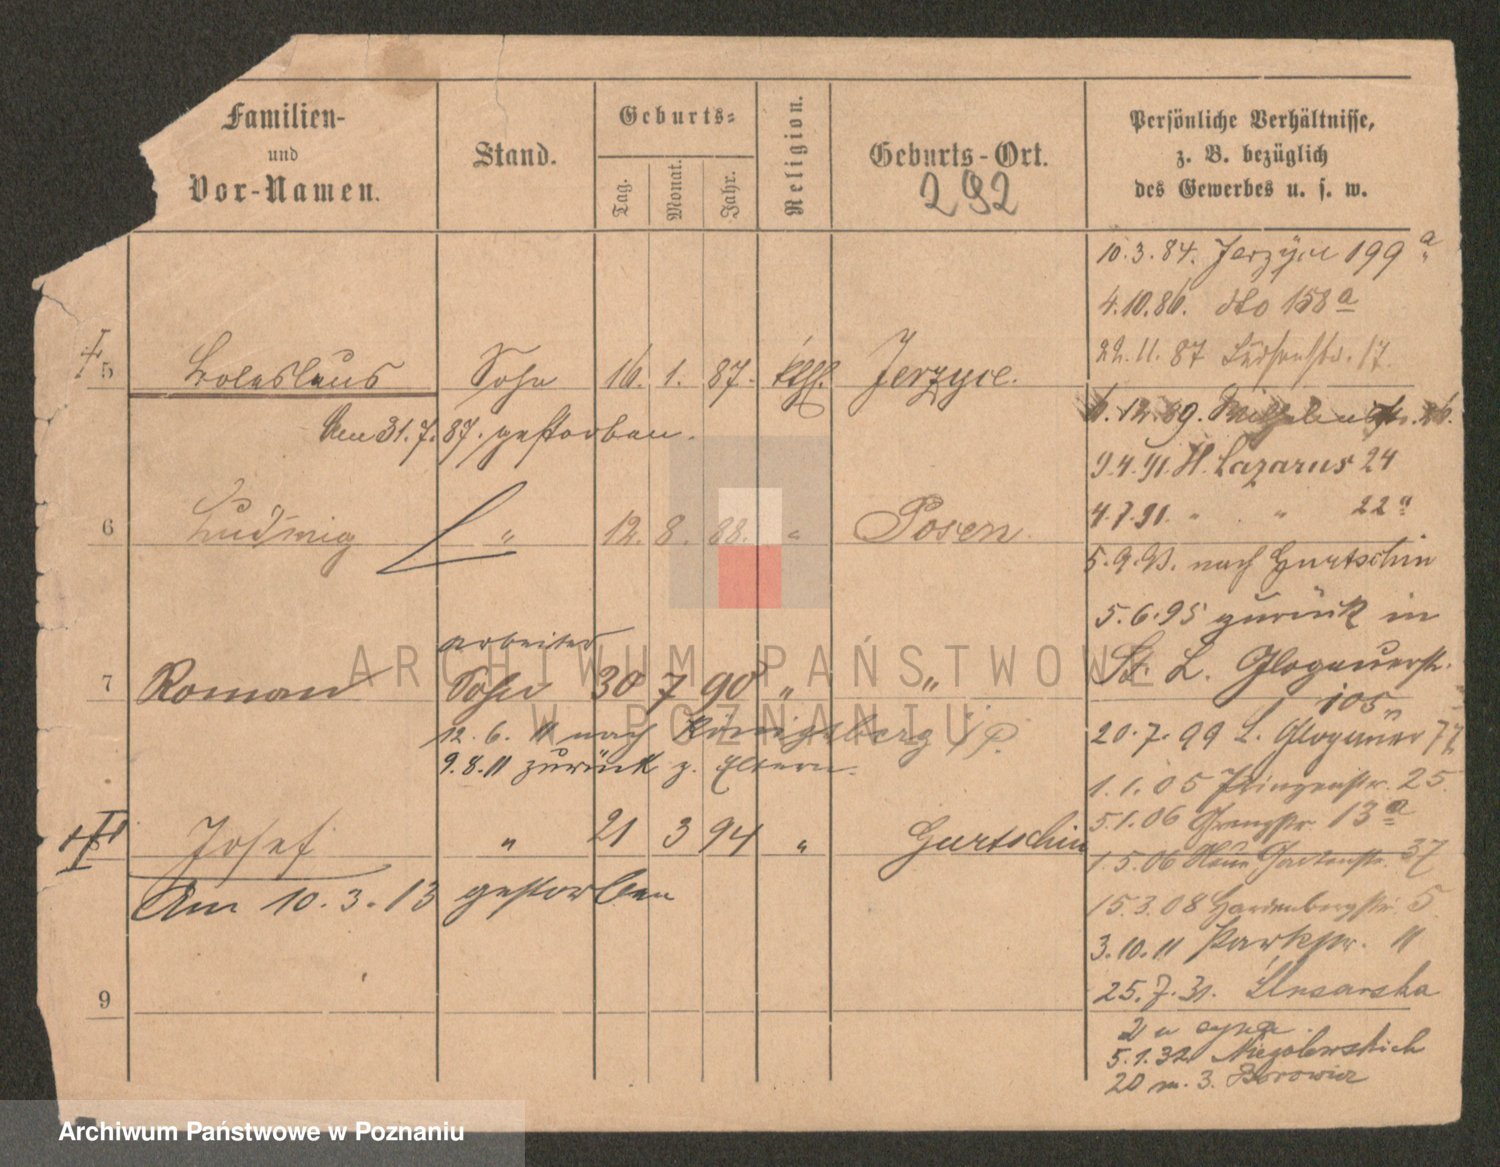 Familien-
und
Vor-Namen.
Stand.
Geburts-
Tag.
Monat.
Jahr.
Religion.
Geburts-Ort.
292
Persönliche Verhältnisse,
z. B. bezüglich
des Gewerbes u. s. w.
10.3.84. Jerzyce 199 a
4.10.86. dto 158 a
22.11.87 17.
5 Boleslaus Sohn 16. 1. 87. kth. Jerzyce.
12.89.
Am 31.7.87. gestorben.
9.4.91. St. Lazarus 24
4.7.91. " " 22 a
6 Ludwig " 12. 8. 88. " Posen.
5.9.93. nach Gurtschin
5.6.95 zurück in
St. L. Glogauerstr.
105
arbeiter
7 Roman Sohn 30 7 90 " "
12. 6. 11 nach Königsberg i/P.
9.8.11 zurück z. Eltern.
20.7.99 L. Glogauer 77
1.1.05 Prinzenstr. 25
5.1.06 Grenzstr. 13 a
8 Josef " 21 3 94 " Gurtschin
1.5.06 Neue Gartenstr. 37
Am 10.3.13 gestorben
15.3.08 Hardenbergstr. 5
3.10.11 Parkstr. 11
25.7.31.
9
5.1.32 Niegolewskich
20 m. 3. Borowicz
ARCHIWUM PAŃSTWOWE
W POZNANIU
Archiwum Państwowe w Poznaniu